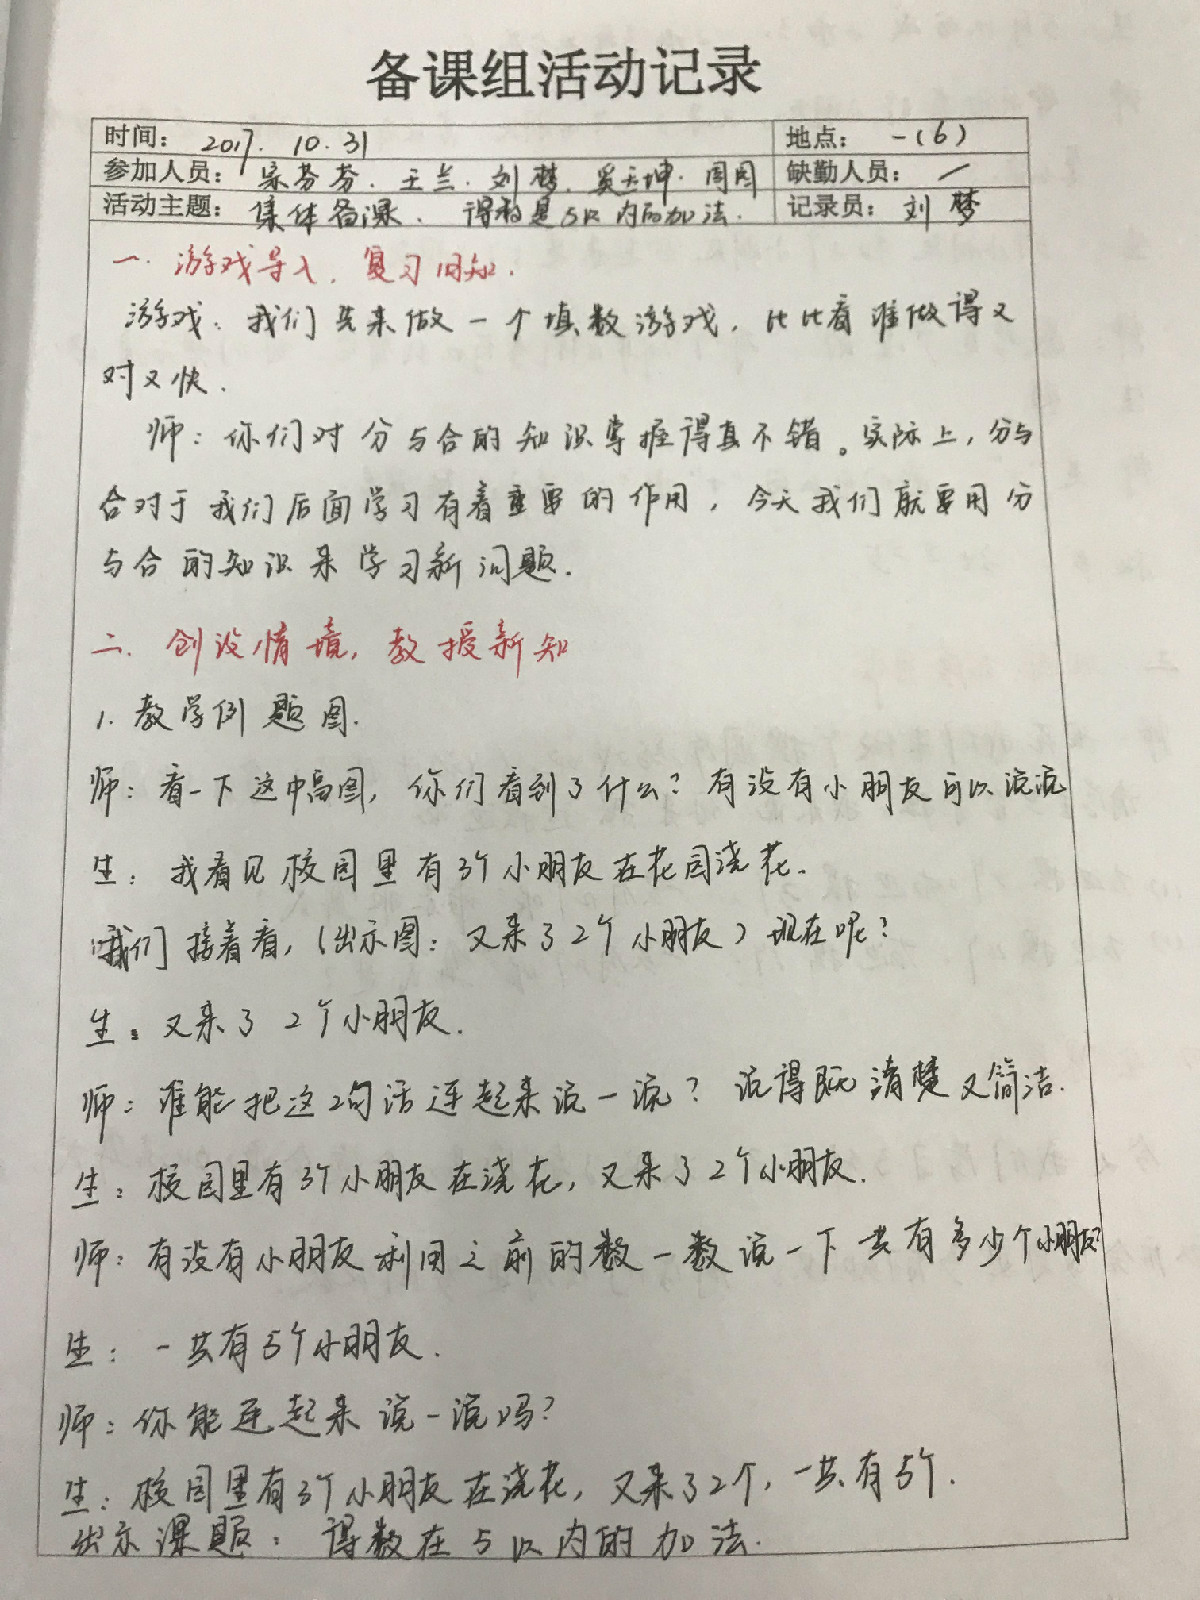 备课组活动记录
时间： 2017. 10. 31 地点： 一(6)
参加人员： 宗芬芬. 王兰. 刘梦. 天坤. 周围 缺勤人员： /
活动主题： 集体备课. 得数是5以内的加法. 记录员： 刘梦
一. 游戏导入, 复习旧知.
游戏: 我们先来做一个填数游戏, 比比看谁做得又
对又快.
师: 你们对分与合的知识掌握得真不错。实际上, 分与
合对于我们后面学习有着重要的作用, 今天我们就要用分
与合的知识来学习新问题.
二. 创设情境, 教授新知
1. 教学例题图.
师: 看一下这中图, 你们看到了什么? 有没有小朋友可以说说
生: 我看见校园里有3个小朋友在花园浇花.
我们接着看, (出示图: 又来了2个小朋友) 现在呢?
生: 又来了2个小朋友.
师: 谁能把这2句话连起来说一说? 说得既清楚又简洁.
生: 校园里有3个小朋友在浇花, 又来了2个小朋友.
师: 有没有小朋友利用之前的数一数说一下共有多少个小朋友?
生: 一共有5个小朋友.
师: 你能连起来说一说吗?
生: 校园里有3个小朋友在浇花, 又来了2个, 一共有5个.
出示课题: 得数在5以内的加法.